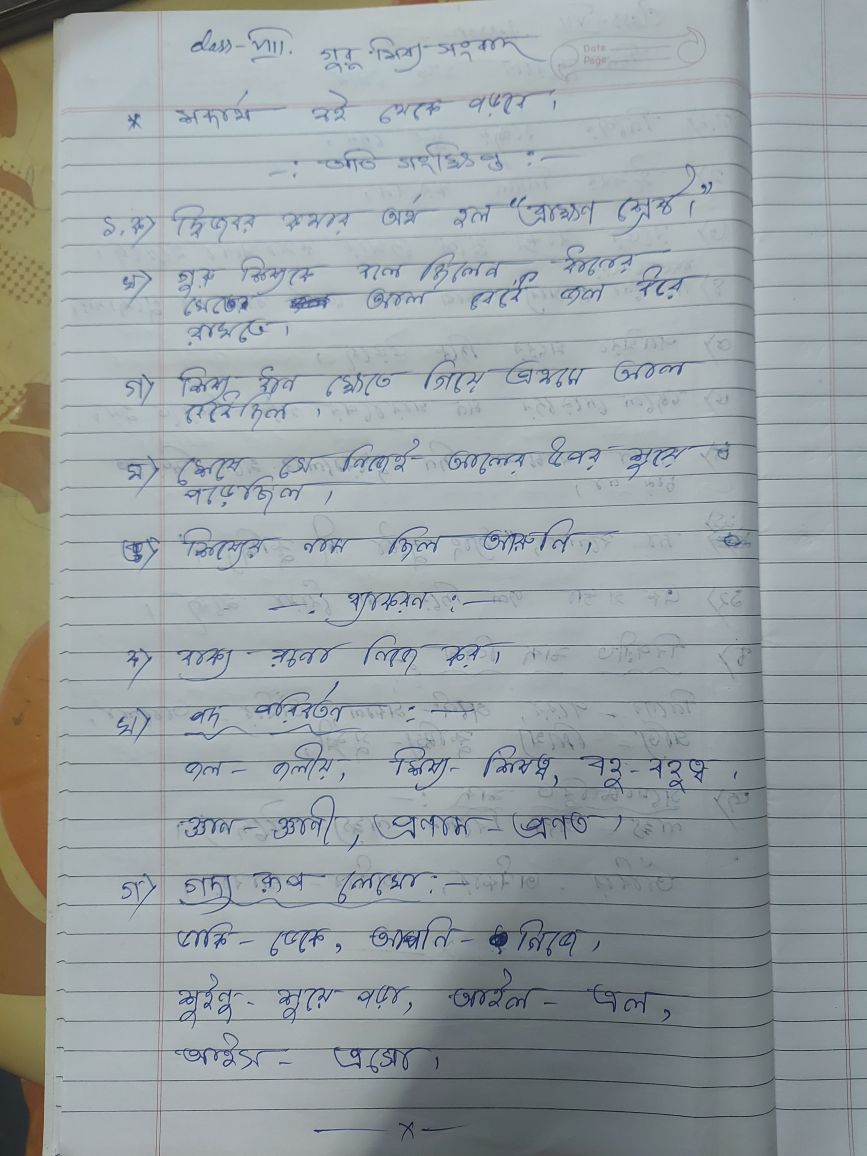 class-VIII. গুরু শিষ্য-সংবাদ
Date
Page
* শব্দার্থ বই থেকে পড়বে।
-: অতি সংক্ষিপ্ত :-
১.ক) দ্বিজবর কথার অর্থ হল "ব্রাহ্মণ শ্রেষ্ঠ।"
খ) গুরু শিষ্যকে বলে ছিলেন ধানের
ক্ষেতের আল বেঁধে জল ধরে
রাখতে।
গ) শিষ্য ধান ক্ষেতে গিয়ে প্রথমে আল
বেঁধেছিল।
ঘ) শেষে সে নিজেই আলের উপর শুয়ে
পড়েছিল।
ঙ) শিষ্যের নাম ছিল আরুনি।
—: ব্যাকরন :—
ক) বাক্য রচনা নিজে কর।
খ) পদ পরিবর্তন :—
জল - জলীয়, শিষ্য - শিষ্যত্ব, বহু - বহুত্ব,
জ্ঞান - জ্ঞানী, প্রনাম - প্রনত।
গ) গদ্য রূপ লেখো :-
ডাকি - ডেকে, আপনি - নিজে,
শুইনু - শুয়ে পড়া, আইল - এল,
আইস - এসো।
— x —